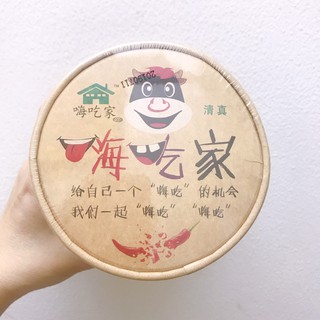 嗨吃家
清真
嗨吃家
给自己一个“嗨吃”的机会
我们一起“嗨吃”“嗨吃”